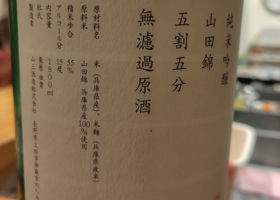 純米吟醸
山田錦
五割五分
無濾過原酒
原材料名 米(兵庫県産)、米麹(兵庫県産米)
原料米 山田錦 兵庫県産100%使用
精米歩合 55%
アルコール分 15度
内容量 1800ml
杜氏
製造者 山三酒造株式会社